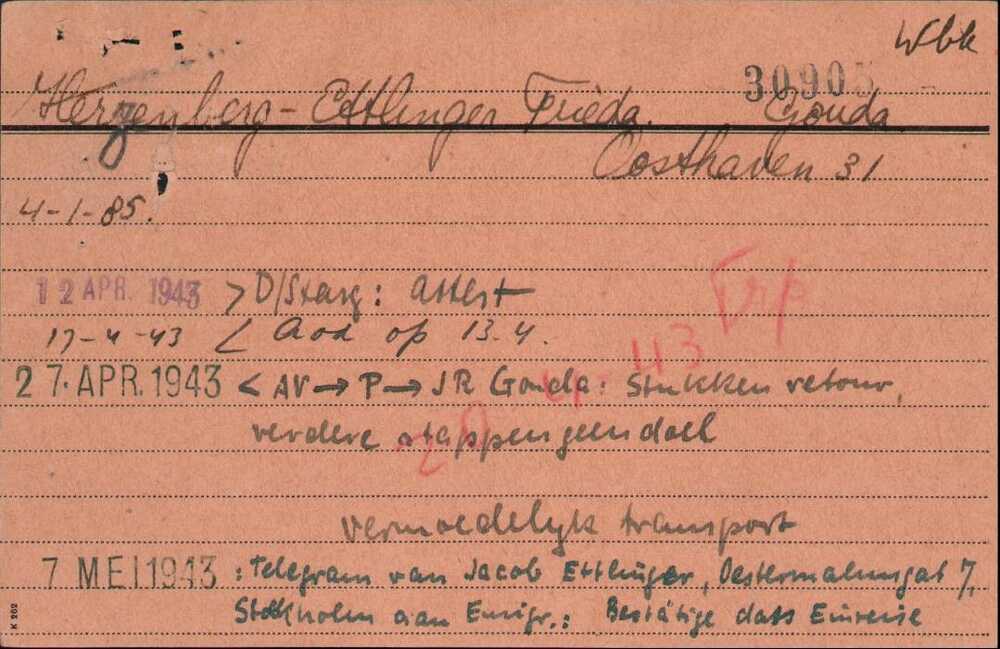 Wbk
30905
Herzenberg-Ettlinger Frieda. Gouda
Oosthaven 31
4-1-85.
12 APR. 1943 > D/Starg: attest
Trp
17-4-43 < Aod op 13.4.
20-4-43
27. APR. 1943 < AV → P → JR Gouda: Stukken retour,
verdere stappen geen doel
vermoedelyk transport
7 MEI 1943 : Telegram van Jacob Ettlinger, Oestermalmsgat 7,
Stockholm aan Emigr.: Bestätige dass Einreise
K 262